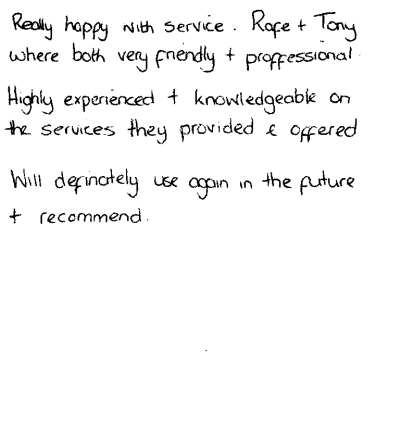 Really happy with service. Rafe + Tony
where both very friendly + proffessional.
Highly experienced + knowledgeable on
the services they provided & offered
Will definately use again in the future
+ recommend.